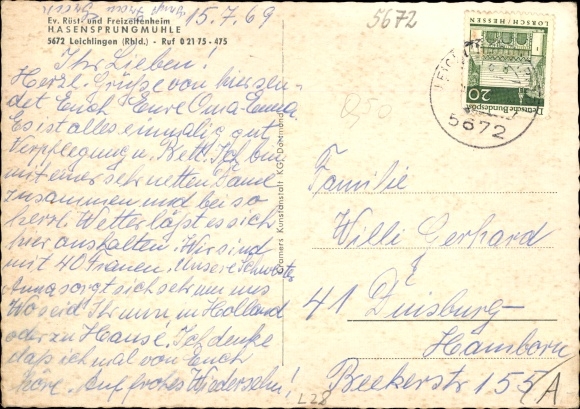 15.7.69
Ev. Rüst- und Freizeitenheim
HASENSPRUNGMÜHLE
5672 Leichlingen (Rhld.) - Ruf 0 21 75 - 475
Ihr Lieben!
Herzl. Grüße von hier sen-
det Euch Eure Oma Emma.
Es ist alles einmalig gut
Verpflegung u. Bett. Ich bin
mit einer sehr netten Dame
zusammen und bei so
herzl. Wetter läßt es sich
hier aushalten. Wir sind
mit 40 Frauen. Unsere Schweste
Anna sorgt sich sehr um uns
Wo seid Ihr nun in Holland
oder zu Hause. Ich denke
daß ich mal von Euch
höre. Auf frohes Wiedersehn!
Cramers Kunstanstalt KG, Dortmund
5672
LORSCH / HESSEN
Deutsche Bundespost
20
5672
Familie
Willi Gerhard
41 Duisburg-
Hamborn
Beekerstr 155
A
L28